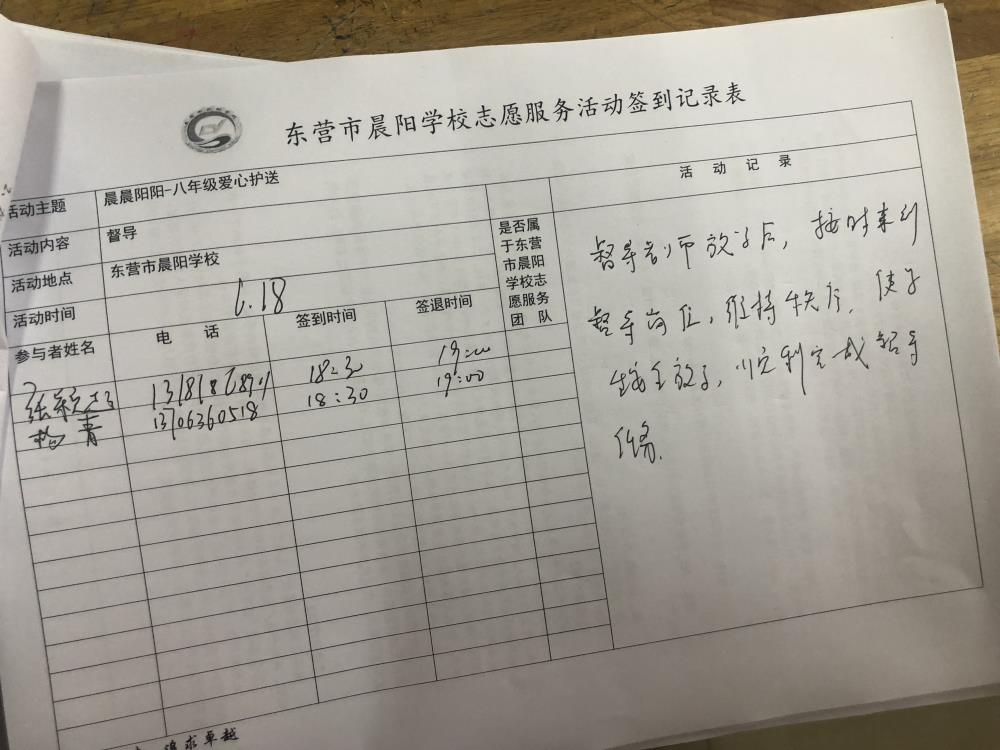 东营市晨阳学校志愿服务活动签到记录表
活动主题 晨晨阳阳-八年级爱心护送
活动内容 督导
活动地点 东营市晨阳学校
活动时间 6.18
参与者姓名 电 话 签到时间 签退时间
是否属
于东营
市晨阳
学校志
愿服务
团 队
18:30 19:00
杨青 13706360518 18:30 19:00
活 动 记 录
督导老师放学后，按时来到
督导岗位，维持秩序，使学
生安全放学，顺利完成督导
任务.
追求卓越